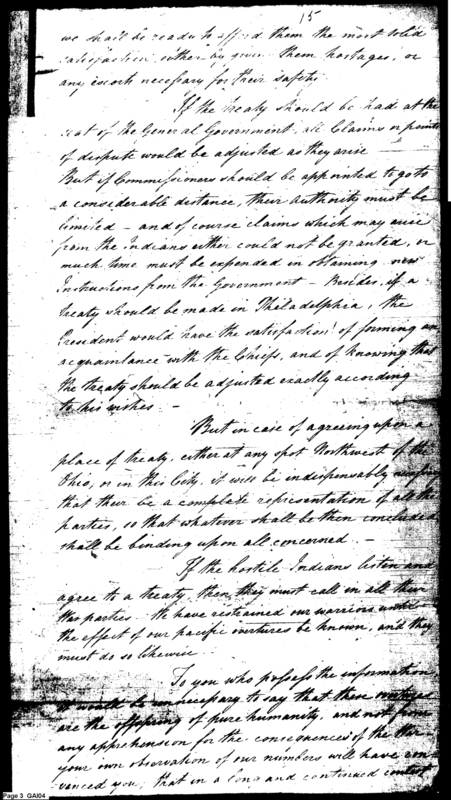 15
we shall be ready to afford them the most solid
satisfaction either by giving them hostages, or
any escort necessary for their safety
If the treaty should be had at the
seat of the General Government, all Claims or points
of dispute would be adjusted as they arise —
But if Commissioners should be appointed to go to
a considerable distance, their authority must be
limited — and of course claims which may arise
from the Indians either could not be granted, or
much time must be expended in obtaining new
Instructions from the Government — Besides, if a
treaty should be made in Philadelphia, the
President would have the satisfaction of forming an
acquaintance with the Chiefs, and of knowing that
the treaty should be adjusted exactly according
to his wishes —
But in case of agreeing upon a
place of treaty, either at any spot Northwest of the
Ohio, or in this City, it will be indispensably necessary
that there be a complete representation of all the
parties, so that whatever shall be then concluded
shall be binding upon all concerned —
If the hostile Indians listen and
agree to a treaty, then they must call in all their
War parties. We have restrained our warriors until
the effect of our pacific overtures be known, and they
must do so likewise
To you who possess the information
it would be unnecessary to say that these overtures
are the offspring of pure humanity, and not from
any apprehension for the consequences of the War
your own observation of our numbers will have con
vinced you, that in a long and continued contest
Page 3 GAI04